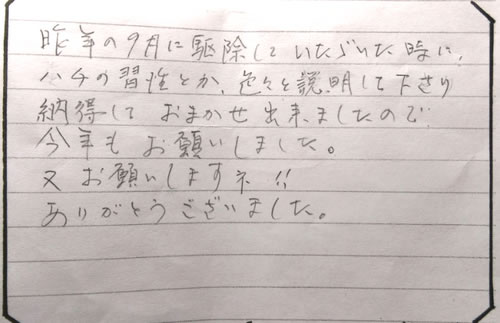 昨年の9月に駆除していただいた時に、
ハチの習性とか、色々と説明して下さり
納得しておまかせ出来ましたので
今年もお願いしました。
又お願いしますネ!!
ありがとうございました。